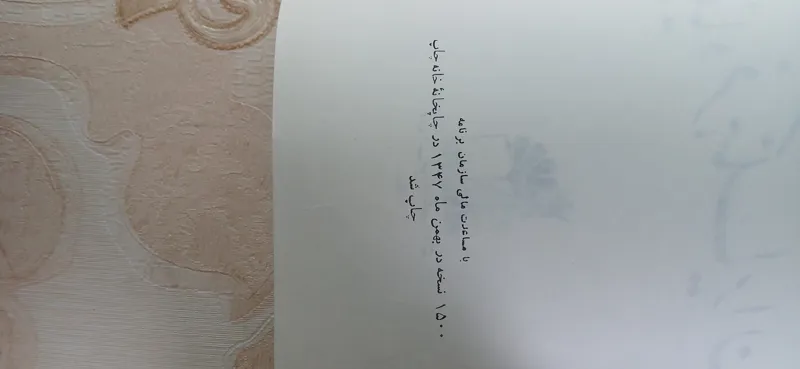 با مساعدت مالی سازمان برنامه
۱۵۰۰ نسخه در بهمن ماه ۱۳۴۷ در چاپخانهٔ خانه چاپ
چاپ شد